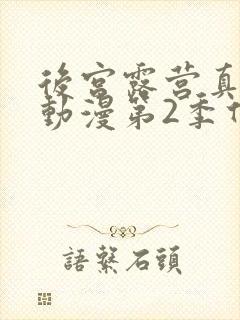 後宮露营真
動漫第2季
語繫石頭